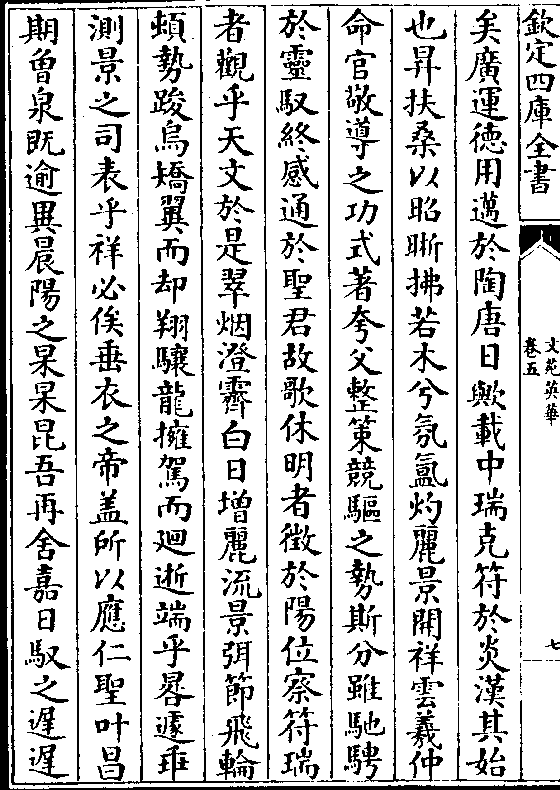 欽定四庫全書
文苑英華
卷五
七
矣廣運徳用邁於陶唐日歟載中瑞克符於炎漢其始
也昇扶桑以昭晣拂若木兮氛氲灼麗景開祥雲羲仲
命官敬導之功式著夸父整策競驅之勢斯分雖馳騁
於靈馭終感通於聖君故歌休明者徴於陽位察符瑞
者觀乎天文於是翠烟澄霽白日增麗流景弭節飛輪
頓勢踆烏矯翼而却翔驤龍擁駕而廻逝端乎晷遽乖
測景之司表乎祥必俟垂衣之帝盖所以應仁聖叶昌
期曽泉既逾異晨陽之杲杲昆吾再舍嘉日馭之遲遲